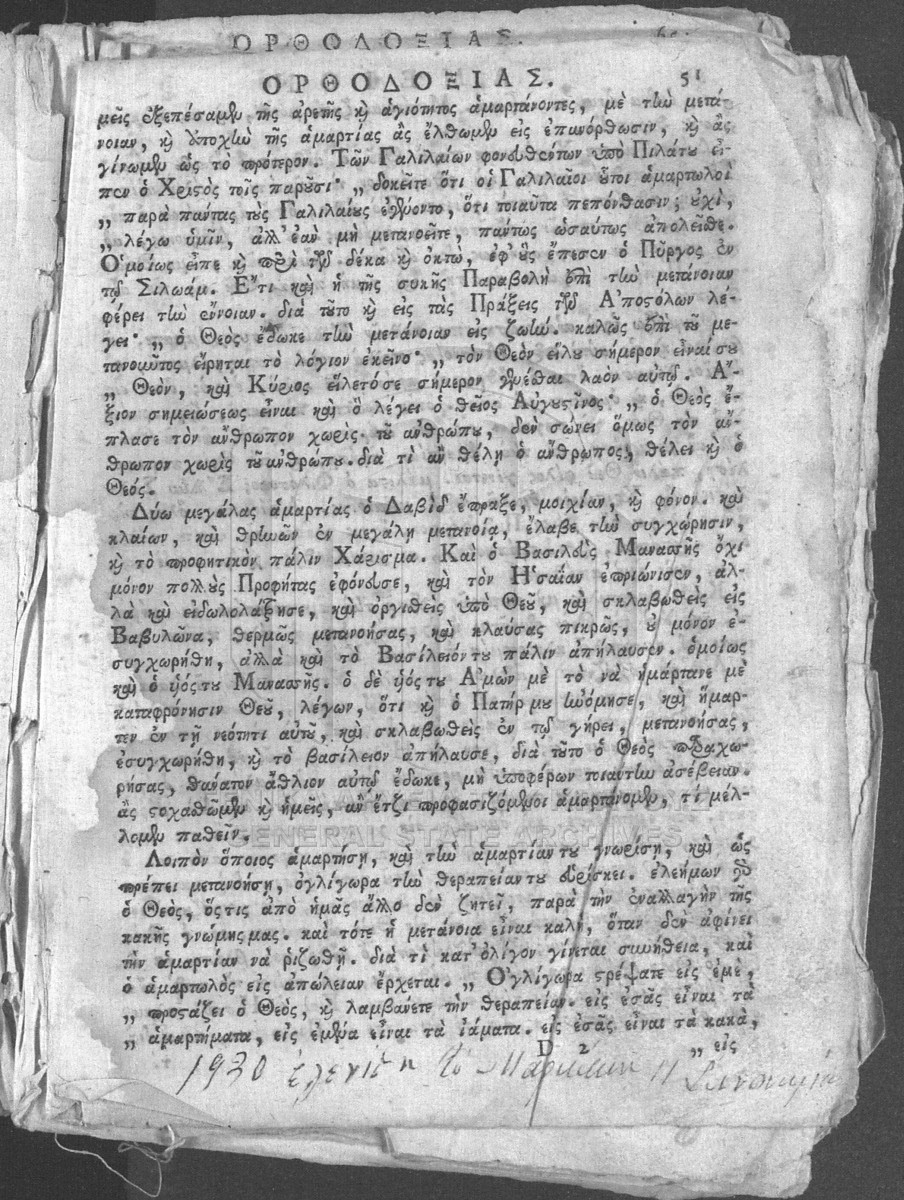 ΟΡΘΟΔΟΞΙΑΣ.
ΟΡΘΟΔΟΞΙΑΣ. 51
μεῖς ἐξεπέσαμεν τῆς ἀρετῆς κỳ ἁγιότητος ἁμαρτάνοντες, μὲ τὴν μετά-
νοιαν, κỳ ἀποχὴν τῆς ἁμαρτίας ἂς ἔλθωμεν εἰς ἐπανόρθωσιν, κỳ ἂς
γίνωμεν ὡς τὸ πρότερον. Τῶν Γαλιλαίων φονευθέντων ὑπὸ Πιλάτου εἶ-
πεν ὁ Χριστὸς τοῖς παροῦσι· „ δοκεῖτε ὅτι οἱ Γαλιλαῖοι οὗτοι ἁμαρτωλοὶ
„ παρὰ πάντας τοὺς Γαλιλαίους ἐγένοντο, ὅτι τοιαῦτα πεπόνθασιν; οὐχὶ,
„ λέγω ὑμῖν, ἀλλ' ἐὰν μὴ μετανοεῖτε, πάντως ὡσαύτως ἀπολεῖσθε.
Ὁμοίως εἶπε κỳ περὶ τῶν δέκα κỳ ὀκτὼ, ἐφ' οὓς ἔπεσεν ὁ Πῦργος ἐν
τῷ Σιλωάμ. Ἔτι καὶ ἡ τῆς συκῆς Παραβολὴ ἐπὶ τὴν μετάνοιαν
φέρει τὴν ἔννοιαν. διὰ τοῦτο κỳ εἰς τὰς Πράξεις τῶν Ἀποστόλων λέ-
γει· „ ὁ Θεὸς ἔδωκε τὴν μετάνοιαν εἰς ζωήν. καλῶς ἐπὶ τοῦ με-
τανοοῦντος εἴρηται τὸ λόγιον ἐκεῖνο· „ τὸν Θεὸν εἵλου σήμερον εἶναί σου
„ Θεὸν, καὶ Κύριος εἵλετό σε σήμερον γενέσθαι λαὸν αὐτῷ. Ἄ-
ξιον σημειώσεως εἶναι καὶ ὃ λέγει ὁ θεῖος Αὐγουστῖνος· „ ὁ Θεὸς ἔ-
πλασε τὸν ἄνθρωπον χωρὶς τοῦ ἀνθρώπου, δὲν σώνει ὅμως τὸν ἄν-
θρωπον χωρὶς τοῦ ἀνθρώπου. διὰ τὶ ἂν θέλῃ ὁ ἄνθρωπος, θέλει κỳ ὁ
Θεός.
Δύω μεγάλας ἁμαρτίας ὁ Δαβὶδ ἔπραξε, μοιχίαν, κỳ φόνον. καὶ
κλαίων, καὶ θρηνῶν ἐν μεγάλῃ μετανοίᾳ, ἔλαβε τὴν συγχώρησιν,
κỳ τὸ προφητικὸν πάλιν Χάρισμα. Καὶ ὁ Βασιλεὺς Μανασσῆς ὄχι
μόνον πολλοὺς Προφήτας ἐφόνευσε, καὶ τὸν Ἡσαΐαν ἐπριώνισεν, ἀλ-
λὰ καὶ εἰδωλολάτρησε, καὶ ὀργισθεὶς ὑπὸ Θεοῦ, καὶ σκλαβωθεὶς εἰς
Βαβυλῶνα, θερμῶς μετανοήσας, καὶ κλαύσας πικρῶς, οὐ μόνον ἐ-
συγχωρήθη, ἀλλὰ καὶ τὸ Βασίλειόν του πάλιν ἀπήλαυσεν. ὁμοίως
καὶ ὁ ὑιός του Μανασσῆς. ὁ δὲ ὑιός του Ἀμὼν μὲ τὸ νὰ ἡμάρτανε μὲ
καταφρόνησιν Θεοῦ, λέγων, ὅτι κỳ ὁ Πατήρ μου ἠνόμησε, καὶ ἥμαρ-
τεν ἐν τῇ νεότητι αὐτοῦ, καὶ σκλαβωθεὶς ἐν τῷ γήρει, μετανοήσας,
ἐσυγχωρήθη, κỳ τὸ βασίλειον ἀπήλαυσε, διὰ τοῦτο ὁ Θεὸς παραχω-
ρήσας, θάνατον ἄθλιον αὐτῷ ἔδωκε, μὴ ὑποφέρων τοιαύτην ἀσέβειαν.
ἂς στοχασθῶμεν κỳ ἡμεῖς, ἂν ἔτζι προφασιζόμενοι ἁμαρτάνομεν, τί μέλ-
λομεν παθεῖν.
GENERAL STATE ARCHIVES
Λοιπὸν ὅποιος ἁμαρτήσῃ, καὶ τὴν ἁμαρτίαν του γνωρίσῃ, καὶ ὡς
πρέπει μετανοήσῃ, ὀγλίγωρα τὴν θεραπείαν του εὑρίσκει. ἐλεήμων γὰρ
ὁ Θεὸς, ὅστις ἀπὸ ἡμᾶς ἄλλο δὲν ζητεῖ, παρὰ τὴν ἐναλλαγὴν τῆς
κακῆς γνώμης μας. καὶ τότε ἡ μετάνοια εἶναι καλὴ, ὅταν δὲν ἀφίνει
τὴν ἁμαρτίαν νὰ ῥιζωθῇ. διὰ τὶ κατ' ὀλίγον γίνεται συνήθεια, καὶ
ὁ ἁμαρτωλὸς εἰς ἀπώλειαν ἔρχεται. „ Ὀγλίγωρα στρέψατε εἰς ἐμὲ,
„ προστάζει ὁ Θεὸς, κỳ λαμβάνετε τὴν θεραπείαν. εἰς ἐσᾶς εἶναι τὰ
„ ἁμαρτήματα, εἰς ἐμένα εἶναι τὰ ἰάματα. εἰς ἐσᾶς εἶναι τὰ κακὰ,
D 2 „ εἰς
1930